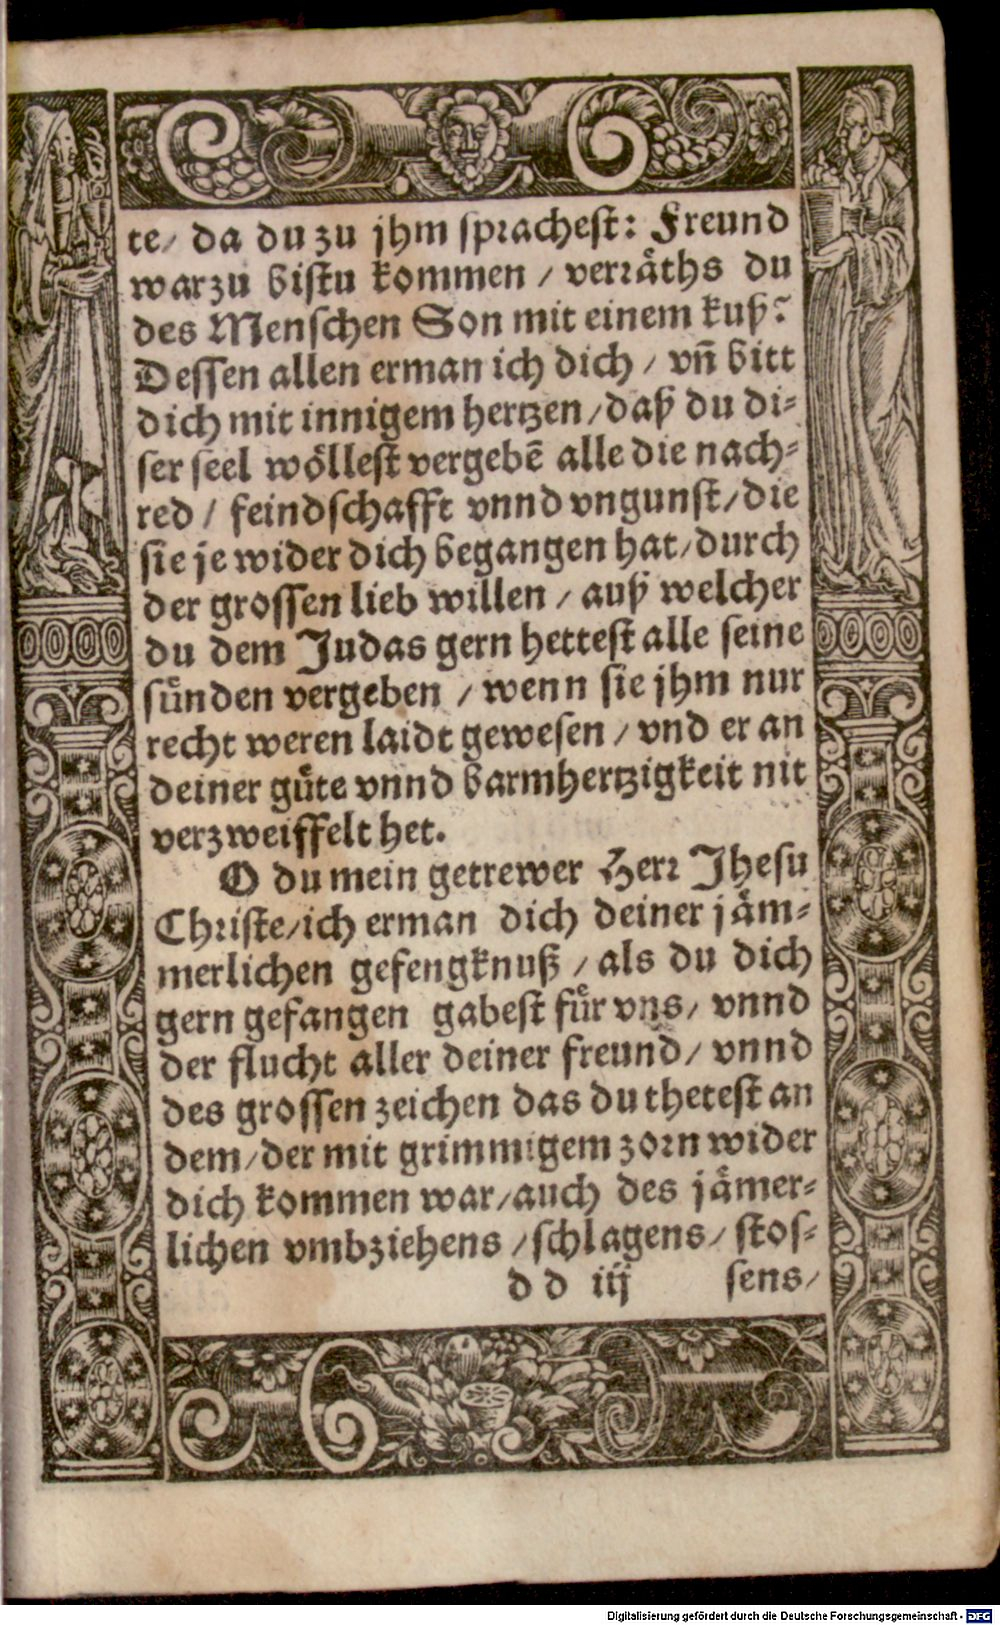 te/ da du zu jhm sprachest: Freund
warzu bistu kommen / verräths du
des Menschen Son mit einem kuß?
Dessen allen erman ich dich / vñ bitt
dich mit innigem hertzen/daß du di⸗
ser seel wöllest vergebē alle die nach⸗
red / feindschafft vnnd vngunst/die
sie je wider dich begangen hat/durch
der grossen lieb willen / auß welcher
du dem Judas gern hettest alle seine
sünden vergeben / wenn sie jhm nur
recht weren laidt gewesen / vnd er an
deiner güte vnnd barmhertzigkeit nit
verzweiffelt het.
O du mein getrewer Herr Jhesu
Christe/ich erman dich deiner jäm⸗
merlichen gefengknuß / als du dich
gern gefangen gabest für vns/ vnnd
der flucht aller deiner freund/ vnnd
des grossen zeichen das du thetest an
dem/der mit grimmigem zorn wider
dich kommen war/auch des jämer⸗
lichen vmbziehens /schlagens/ stos⸗
d d iij sens/
Digitalisierung gefördert durch die Deutsche Forschungsgemeinschaft - DFG